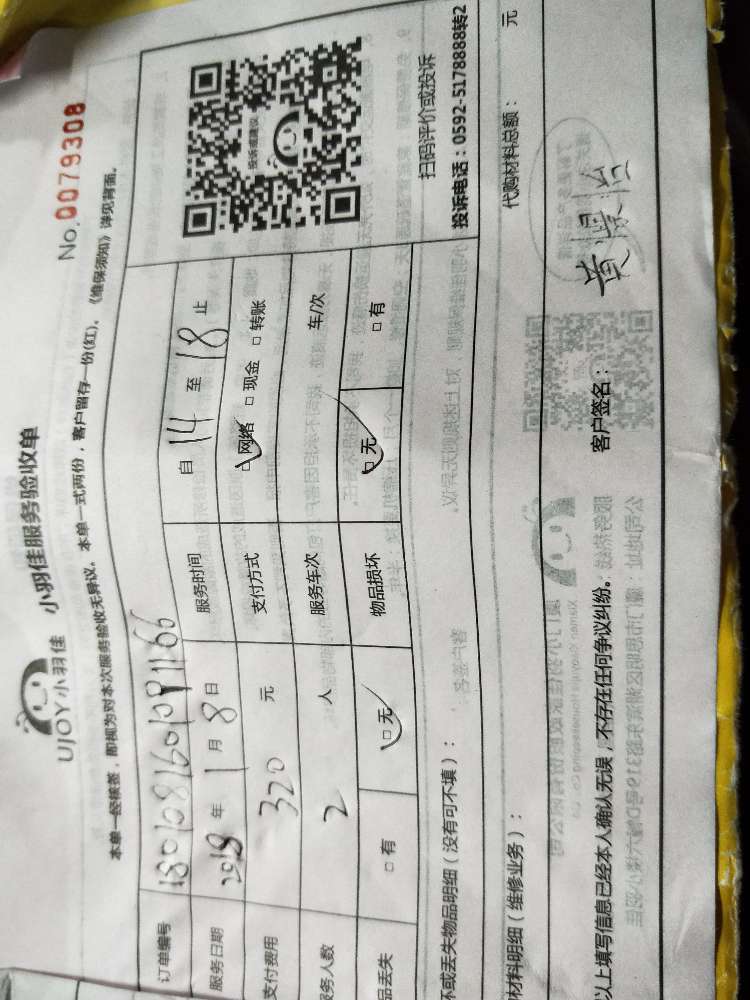 UJOY小羽佳 小羽佳服务验收单
No.0079308
本单一经核签，即视为对本次服务验收无异议。本单一式两份，客户留存一份(红)。《维保须知》详见背面。
订单编号
服务日期 2018 年 1 月 8 日 服务时间 自 14 至 18 止
支付费用 320 元 支付方式 □网络 □现金 □转账
务人数 2 人 服务车次 车/次
品丢失 □有 □无 物品损坏 □无 □有
投诉或建议
扫码评价或投诉
投诉电话：0592-5178888转2
坏或丢失物品明细（没有可不填）：
材料明细（维修业务）： 代购材料总额： 元
以上填写信息已经本人确认无误，不存在任何争议纠纷。 客户签名：